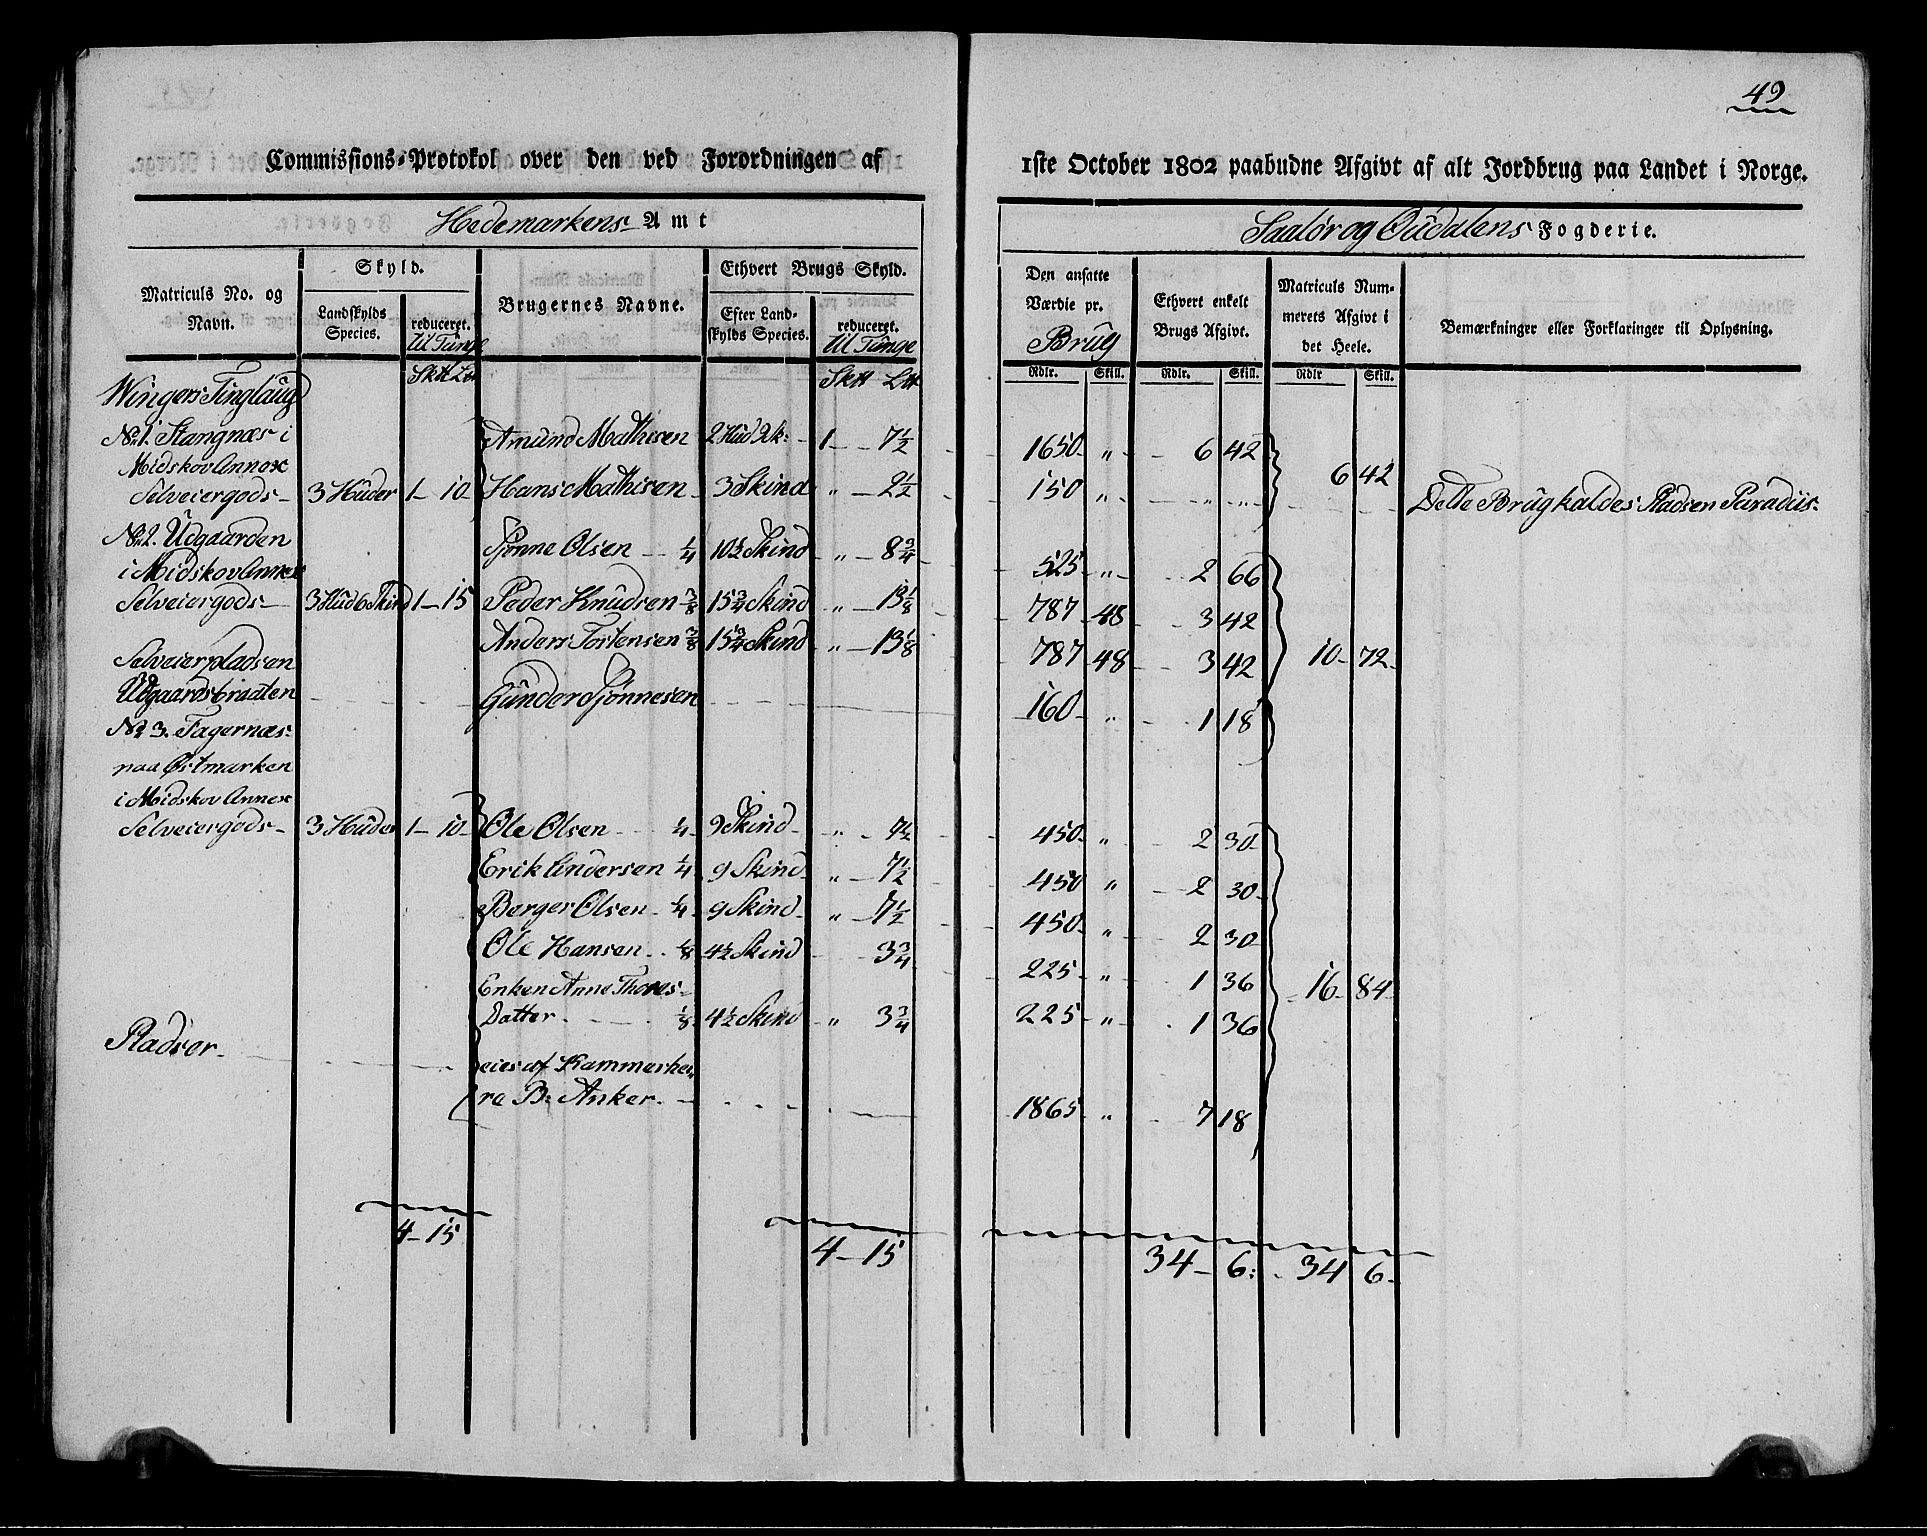 49
Commissions-Protokol over den ved Forordningen af 1ste October 1802 paabudne Afgivt af alt Jordbrug paa Landet i Norge.
Hedemarkens Amt
Saalør og Oudalens Fogderie.
Matriculs No. og Navn.
Skyld.
Landskylds Species.
reduceret. til Tunge
Brugernes Navne.
Ethvert Brugs Skyld.
Efter Landskylds Species.
reduceret. til Tunge
Den ansatte Værdie pr. Brug
Ethvert enkelt Brugs Afgivt.
Matriculs Nummerets Afgivt i det Heele.
Bemærkninger eller Forklaringer til Oplysning.
Rdlr. Skill. Rdlr. Skill. Rdlr Skill.
Wingers Tinglaug
No. 1. Stangnæs i Amund Mathisen 2 Hud 9 Sk: 1 7½ 1650 „ 6 42
Midskov Annex
Selveiergods 3 Huder 1 10 Hans Mathisen 3 Skind „ 2½ 150 „ „ „ 6 42 Dette Brug kaldes Pladsen Paradiis
No. 2. Udgaarden Sjønne Olsen ¼ 10½ Skind „ 8¾ 525 „ 2 66
i Midskov Annex
Selveiergods 3 Hud 6 Skind 1 15 Peder Knudsen ⅜ 15¾ Skind „ 13⅛ 787 48 3 42
Anders Tostensen ⅜ 15¾ Skind „ 13⅛ 787 48 3 42 10 72
Selveierpladsen
Udgaardsbraaten Gunder Sjønnesen 160 „ 1 18
No. 3. Fagernæs
paa Østmarken
i Midskov Annex
Selveiergods 3 Huder 1 10 Ole Olsen ¼ 9 Skind „ 7½ 450 „ 2 30
Erik Andersen ¼ 9 Skind „ 7½ 450 „ 2 30
Berger Olsen ¼ 9 Skind „ 7½ 450 „ 2 30
Ole Hansen ⅛ 4½ Skind 3¾ 225 „ 1 36
Enken Anne Thores-
Datter ⅛ 4½ Skind „ 3¾ 225 „ 1 36 16 84
Pladser
eies af Kammerher-
re B: Anker 1865 „ 7 18
4 15 4 15 34 6 34 6